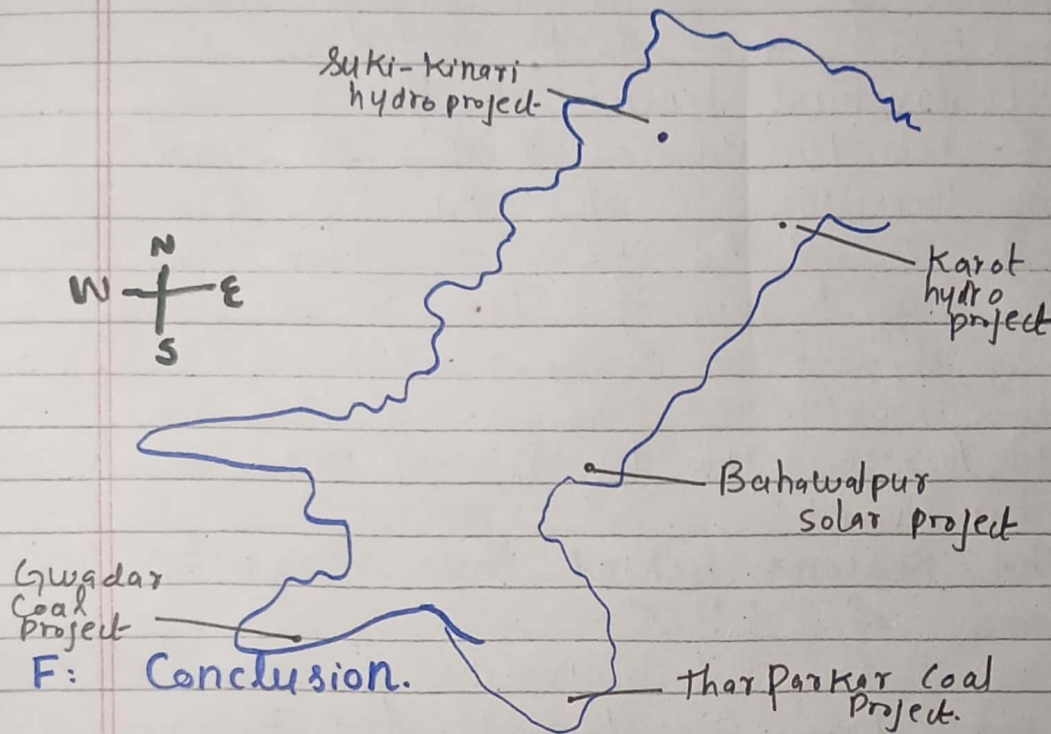 Suki-Kinari
hydro project
N
W E
S
Karot
hydro
project
Bahawalpur
solar project
Gwadar
Coal
Project
F: Conclusion.
Thar Parkar Coal
Project.